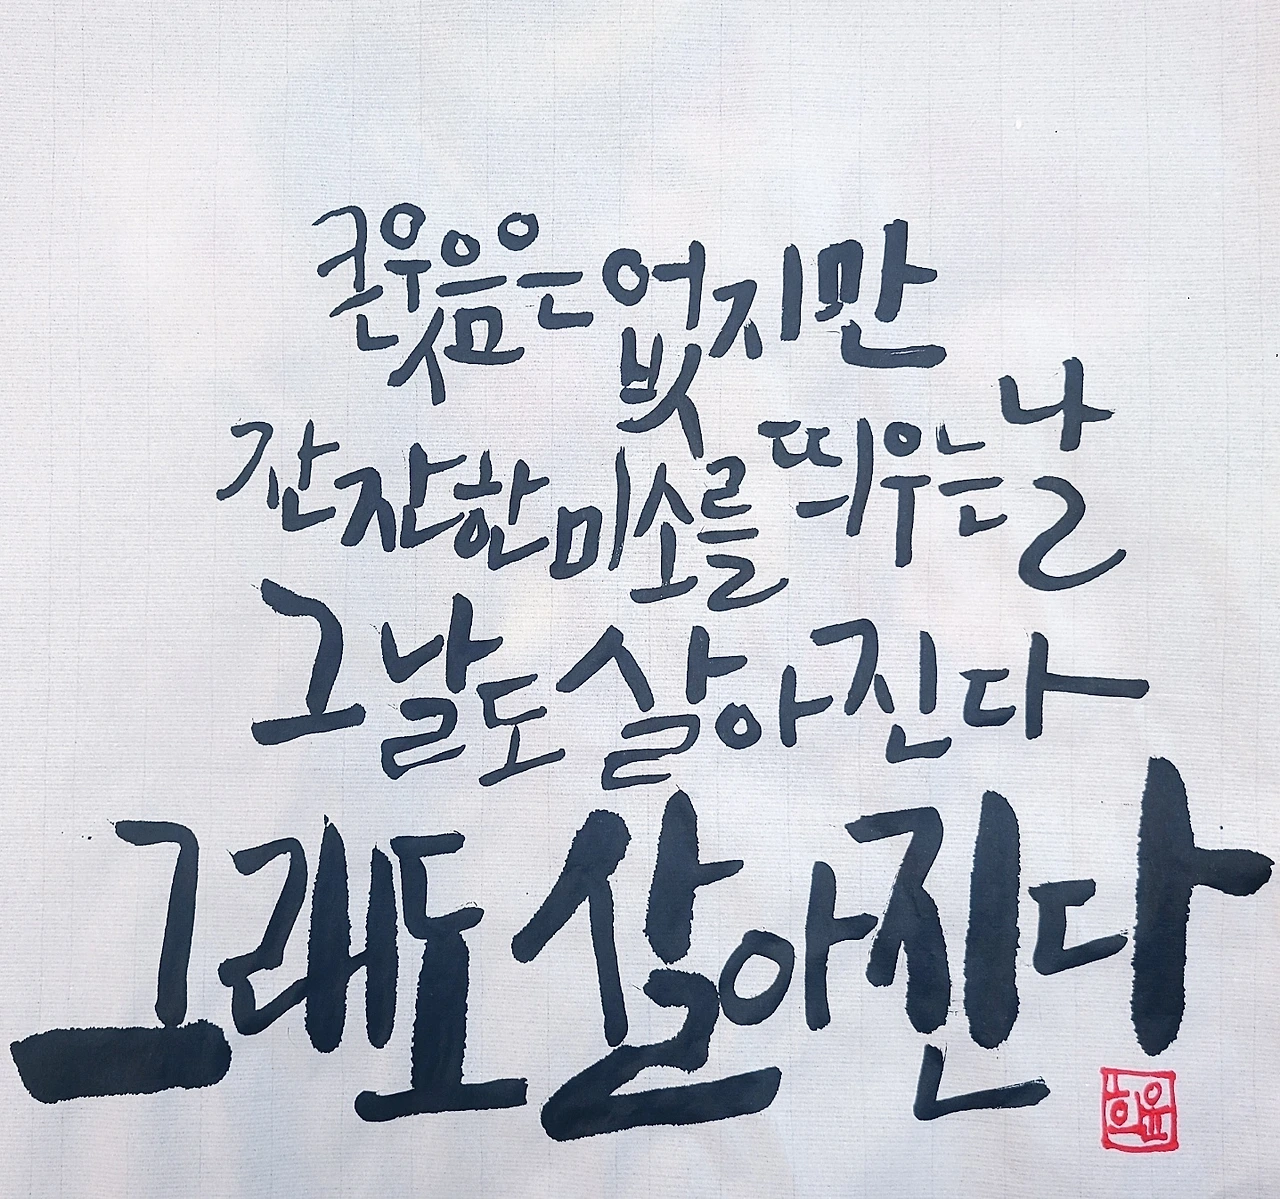 큰웃음은 없지만
잔잔한 미소를 띄우는 날
그날도 살아진다
그래도 살아진다
하윤